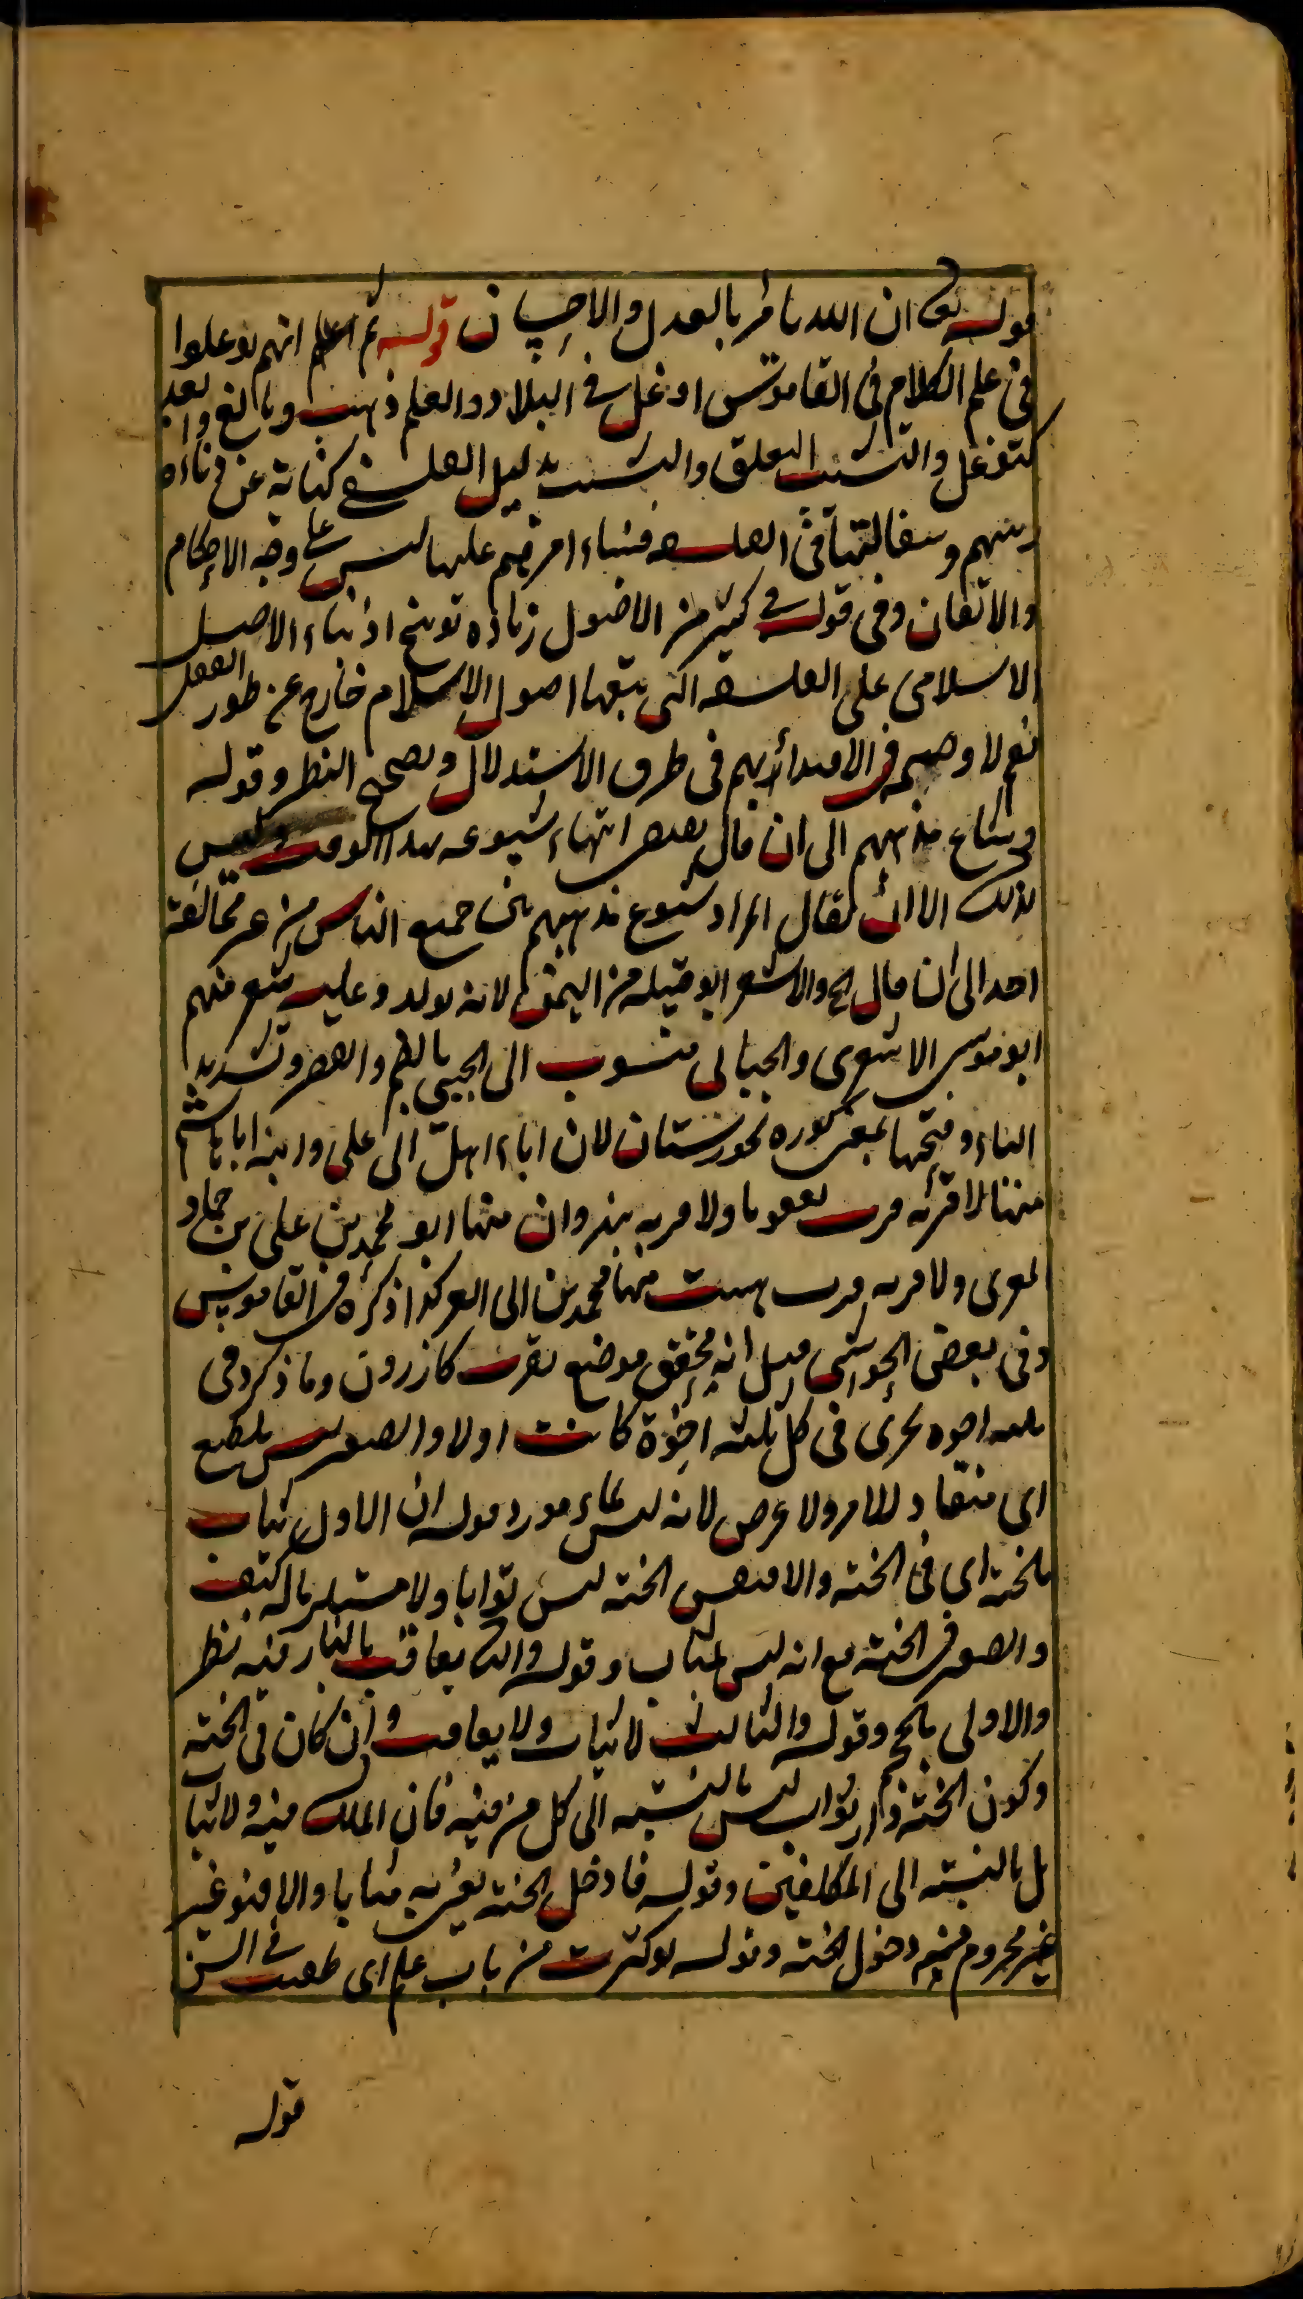 قوله تعالى ان الله يامر بالعدل والاحسان قوله ثم اعلم انهم توغلوا
في علم الكلام في القاموس اوغل في البلاد والعلم ذهب وبالغ وابعد
كتوغل والتشبث التعلق والتشبث بذيل الفلسفي كناية عن دناءة
دينهم وسفالتها في الفلسفة فبناء امر دينهم عليها ليس على وجه الاحكام
والاتقان وفي قوله في كثير من الاصول زيادة توبيخ اذ بناء الاصل
الاسلامي على الفلسفة التي اصول الاسلام خارج عن طور العقل
نعم لا في الاقتداء بهم في طرق الاستدلال وتصحيح النظر وقوله
وشاع مذهبهم الى ان قال يقتضي انتهاء شيوعه بهذا الوقت وليس
كذلك الا ان يقال المراد شيوع مذهبهم بين جميع الناس من غير مخالفة
احد الى ان قال الخ والاشعر ابو قبيلة من اليمن لانه ولد وعليه شعر منهم
ابو موسى الاشعري والجبائي منسوب الى الجبى بالضم والقصر وتشديد
الباء وفتحها بمعنى كورة بخورستان لان اباه اهل الى علي وابنه ابا هاشم
منها لا قرية قرب بعقوبا ولا قرية بنهروان منها ابو محمد بن علي بن حماد
المقري ولا قرية قرب هيت منها محمد بن ابي العز كذا ذكره في القاموس
وفي بعض الحواشي قيل انه محقق موضع بقرب كازرون وما ذكر في
ثلثة اخوة يجرى في كل ثلثة اخوة كانت اولا والصغير ليس بمطيع
اي منقاد للامر ولا عرض لانه ليس مورد قوله ان الاول يثاب
بالجنة اي في الجنة والا فنفس الجنة ليس ثوابا ولا مستلزما له كيف
والصغير في الجنة مع انه ليس بمثاب وقوله والثاني يعاقب بالنار فيه نظر
والاولى بالجحيم وقوله والثالث لا يثاب ولا يعاقب وان كان في الجنة
وكون الجنة دار ثواب ليس بالنسبة الى كل من فيه فان الملك فيه ولا يثاب
بل بالنسبة الى المكلفين وقوله فادخل الجنة يعني به مثابا والا فهو غير
غير محروم من دخول الجنة وقوله لو كبرت من باب علم اي طعنت في السن
قوله